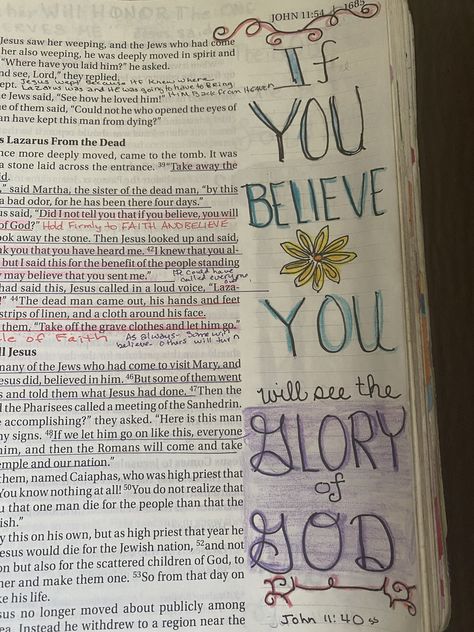 JOHN 11:54
1685
Jesus saw her weeping, and the Jews who had come
her also weeping, he was deeply moved in spirit and
"Where have you laid him?" he asked.
nd see, Lord," they replied.
Jesus wept because He knew where
ept.
Lazarus was and He was going to have to bring
Him Back from Heaven
he Jews said, "See how he loved him!"
me of them said, "Could not he who opened the eyes of
an have kept this man from dying?"
s Lazarus From the Dead
nce more deeply moved, came to the tomb. It was
a stone laid across the entrance. 39"Take away the
d.
," said Martha, the sister of the dead man, "by this
a bad odor, for he has been there four days."
us said, "Did I not tell you that if you believe, you will
of God?" Hold Firmly to FAITH AND BELIEVE
ook away the stone. Then Jesus looked up and said,
nk you that you have heard me. 42I knew that you al-
but I said this for the benefit of the people standing
y may believe that you sent me."
He could have
called everyone
out
had said this, Jesus called in a loud voice, "Laza-
!" 44The dead man came out, his hands and feet
strips of linen, and a cloth around his face.
them, "Take off the grave clothes and let him go."
le of Faith
As always- Some will
believe- others will turn
ll Jesus
many of the Jews who had come to visit Mary, and
esus did, believed in him. 46But some of them went
s and told them what Jesus had done. 47Then the
d the Pharisees called a meeting of the Sanhedrin.
e accomplishing?" they asked. "Here is this man
ny signs. 48If we let him go on like this, everyone
him, and then the Romans will come and take
emple and our nation."
them, named Caiaphas, who was high priest that
You know nothing at all! 50You do not realize that
u that one man die for the people than that the
ish."
y this on his own, but as high priest that year he
esus would die for the Jewish nation, 52and not
on but also for the scattered children of God, to
her and make them one. 53So from that day on
ke his life.
sus no longer moved about publicly among
ea. Instead he withdrew to a region near the
If
YOU
BELIEVE
YOU
will see the
GLORY
of
GOD
John 11:40